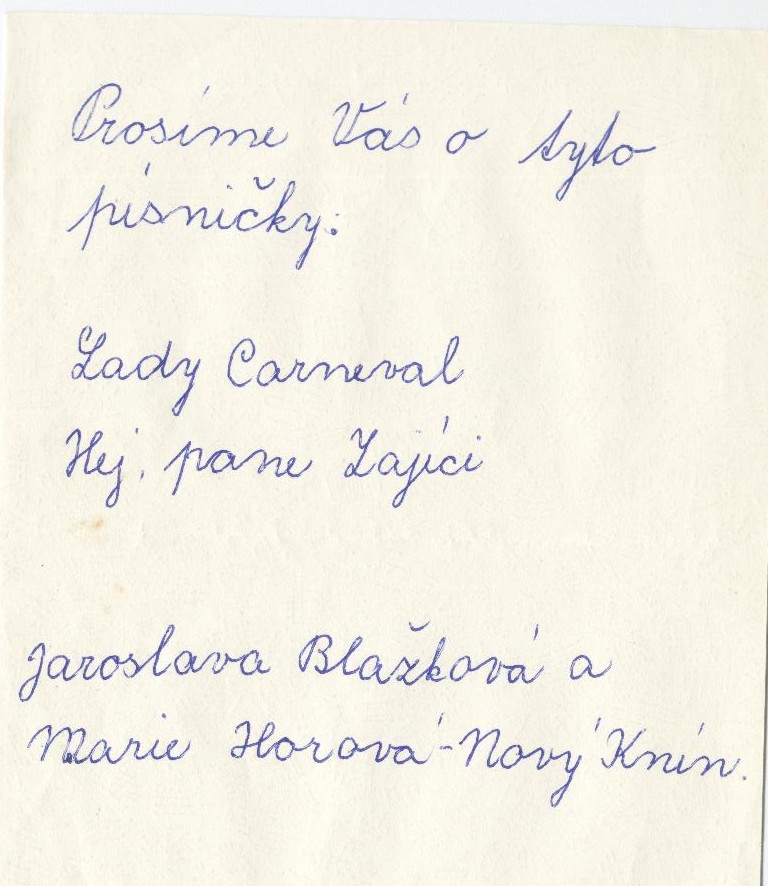 Prosíme Vás o tyto
písničky:
Lady Carneval
Hej, pane Zajíci
Jaroslava Blažková a
Marie Horová - Nový Knín.